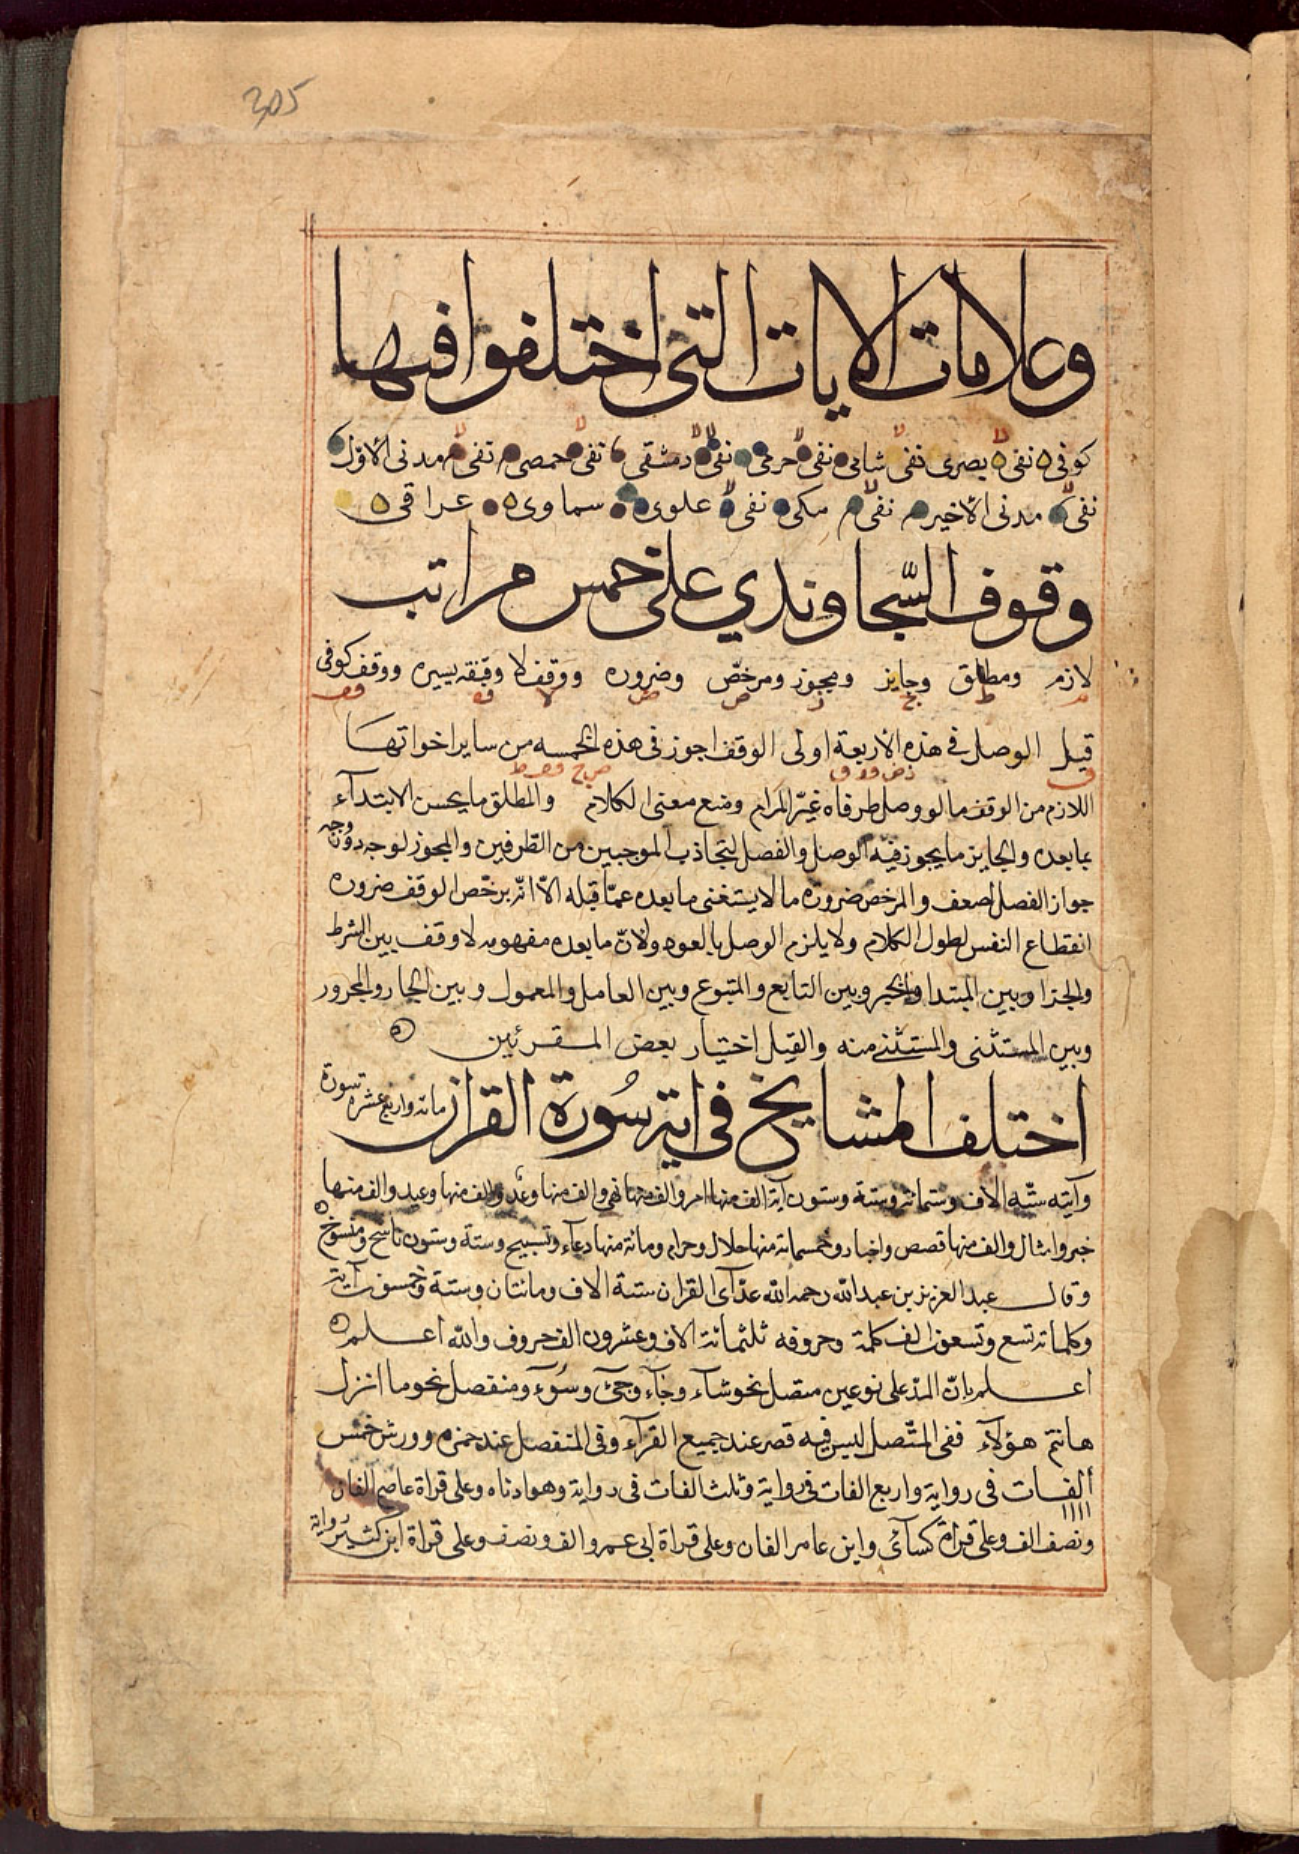 305
وعلامات الايات التى اختلفوا فيها
كوفى نفى بصرى نفى شامى نفى حرمى نفى دمشقى نفى حمصى نفى مدنى الاول
نفى مدنى الاخير نفى مكى نفى علوى سماوى عراقى
وقوف السّجاوندي على خمس مراتب
لازم ومطلق وجايز ومجوز ومرخّص وضروره ووقف لا وقفه يسيره ووقف كوفى
م ط ج ز ص ض لا قفه قف
قيل الوصل فى هذه الاربعة اولى الوقف اجوز فى هذه الخمسه من ساير اخواتها
ق
اللازم من الوقف ما لو وصل طرفاه غيّر المرام وضع معنى الكلام والمطلق ما يحسن الابتدآء
بما بعده والجايز ما يجوز فيه الوصل والفصل لتجاذب الموجبين من الطّرفين والمجوز لوجه دون وجه
جواز الفصل اضعف والمرخص ضروره ما لا يستغنى ما بعده عمّا قبله الاّ انّه يرخّص الوقف ضروره
انقطاع النفس لطول الكلام ولا يلزم الوصل بالعود ولانّ ما بعده مفهوم لا وقف بين الشرط
والجزا وبين المبتدا والخبر وبين التابع والمتبوع وبين العامل والمعمول وبين الجار والمجرور
وبين المستثنى والمستثنى منه والقيل اختيار بعض المقرئين
اختلف المشايخ فى اية سُورة القران مائة واربع عشرة سورة
وآيته ستّه الاف وستمائة وستة وستون آية الف منها امر والف منها نهى والف منها وعد والف منها وعيد والف منها
خبر وامثال والف منها قصص واخبار وخمسمائة منها حلال وحرام ومائة منها دعآء وتسبيح وستة وستون ناسخ ومنسوخ
وقال عبد العزيز بن عبد الله رحمه الله عدّ آى القران ستة الاف ومائتان وستة وخمسون آية
وكلماته تسع وتسعون الف كلمة وحروفه ثلثمائة الاف وعشرون الف حروف والله اعلم
اعلم بانّ المدّ على نوعين متصل نحو شآء وجآء وجئ وسُوء ومنفصل نحو ما انزل
هانتم هؤلآء ففى المتّصل ليس فيه قصر عند جميع القرآء وفى المنفصل عند حمزه وورش خمس
ألفات فى رواية واربع الفات فى رواية وثلث الفات فى رواية وهو ادناه وعلى قراة عاصم الفان
ونصف الف وعلى قراة كسآئ وابن عامر الفان وعلى قراة ابى عمرو الف ونصف وعلى قراة ابن كثير رواية